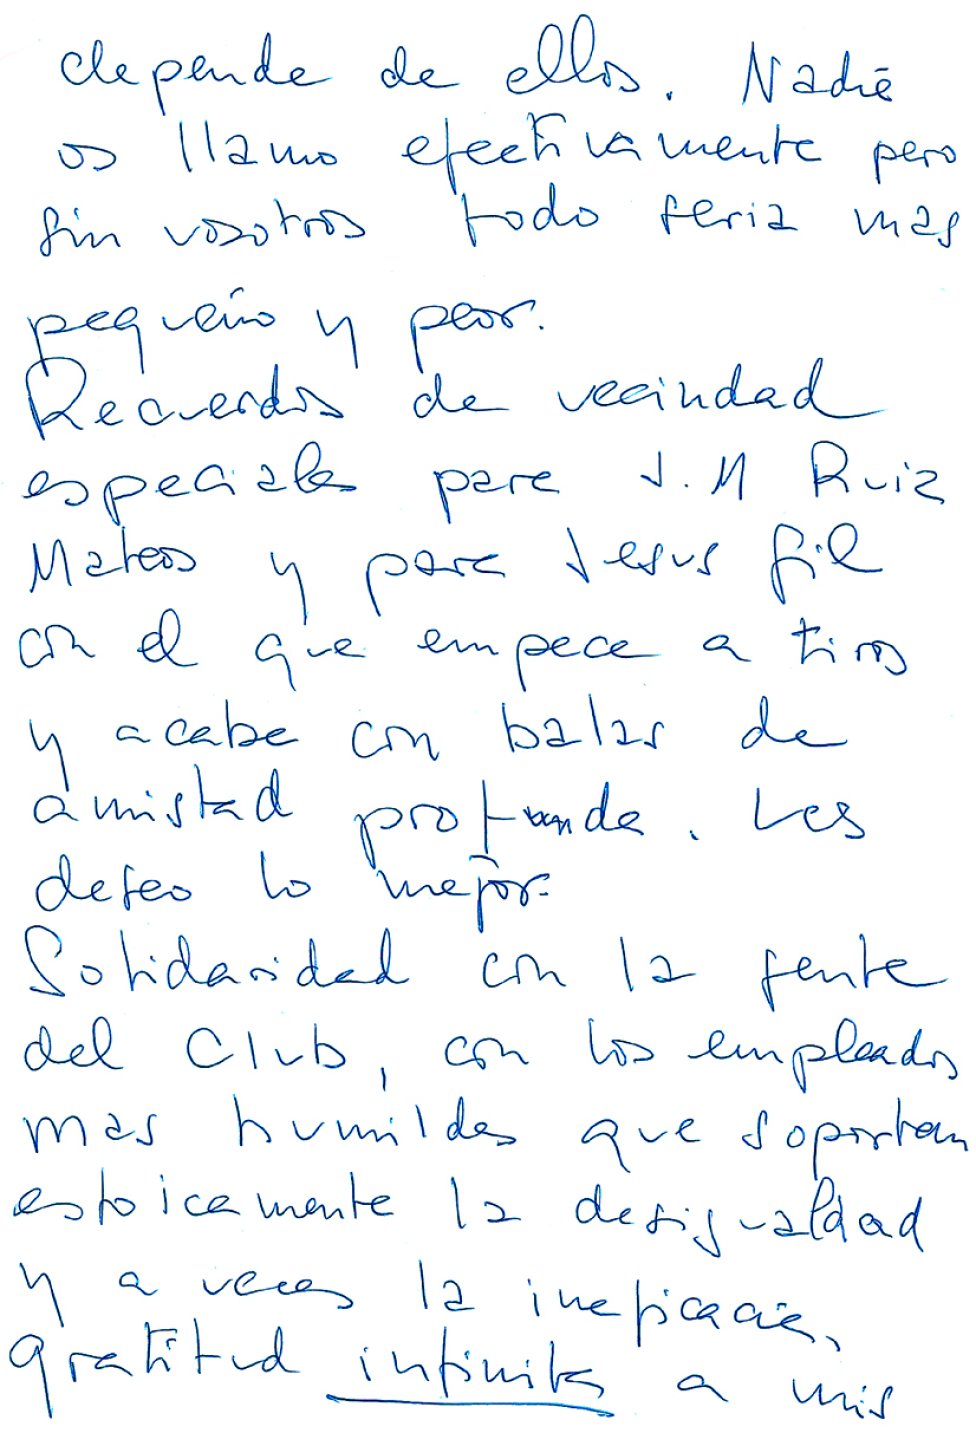 depende de ellos. Nadie
os llamo efectivamente pero
sin vosotros todo seria mas
pequeño y peor.
Recuerdos de vecindad
especiales para J.M Ruiz
Mateos y para Jesus Gil
con el que empece a tiros
y acabe con balas de
amistad profunda. Les
deseo lo mejor.
Solidaridad con la gente
del Club, con los empleados
mas humildes que soportan
estoicamente la desigualdad
y a veces la ineficacia,
gratitud infinita a mis